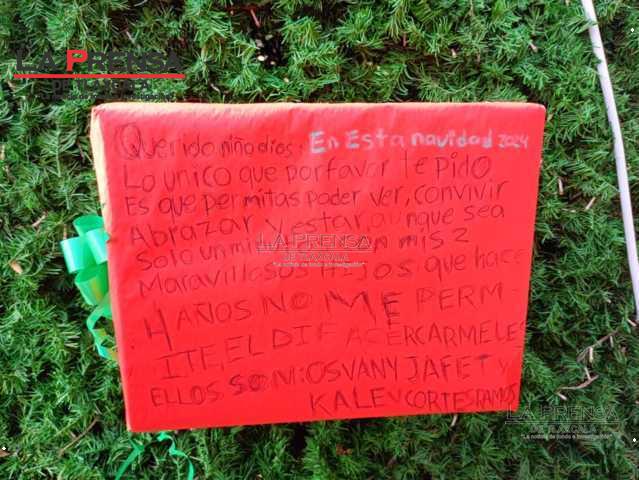 LA PRENSA
DE TLAXCALA
Querido niño dios: En Esta navidad 2024
Lo unico que porfavor te pido
Es que permitas poder ver, convivir
Abrazar y estar, aunque sea
Solo un mis 2
LA PRENSA
DE TLAXCALA
"La noticia de fondo e investigación"
Maravillosos hijos, que hace
4 AÑOS NO ME PERM-
ITE, EL DIF ACERCARMELES
ELLOS SON: OSVANY JAFET Y
KALEV CORTES RAMOS
LA PRENSA
DE TLAXCALA
"La noticia de fondo e investigación"